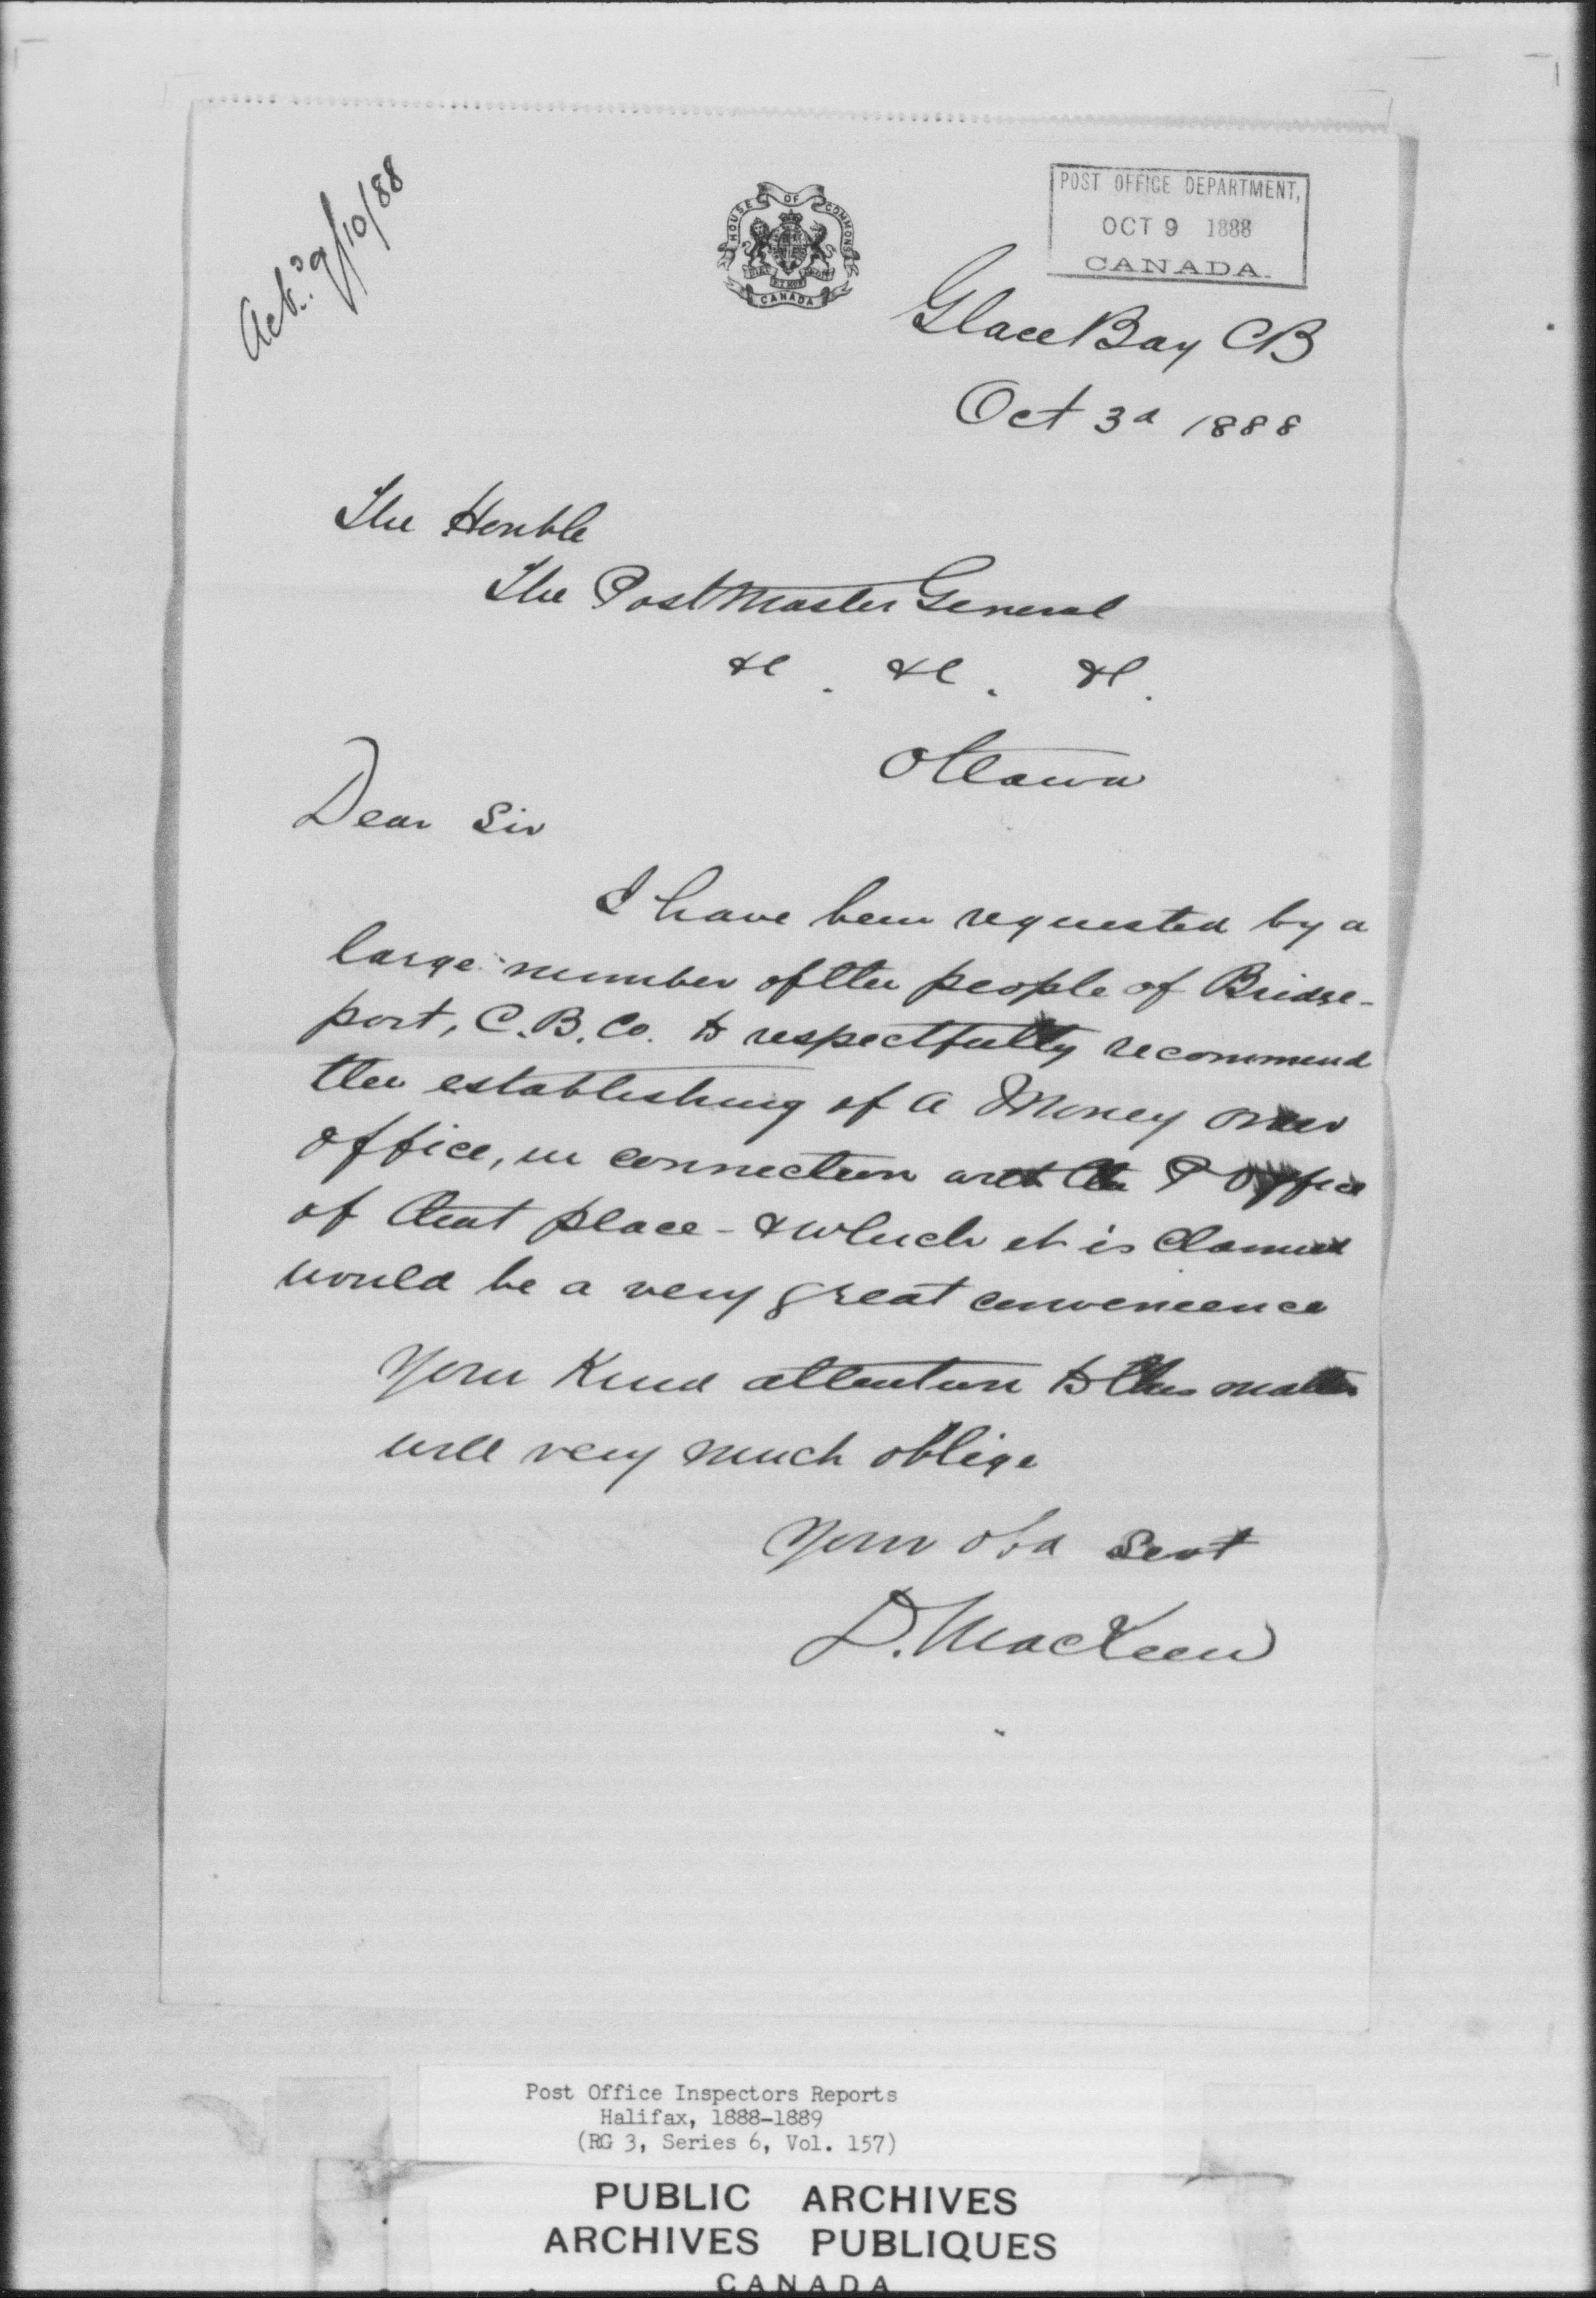 Ack.d 9/10/88
HOUSE OF COMMONS
CANADA
POST OFFICE DEPARTMENT,
OCT 9 1888
CANADA.
Glace Bay CB
Oct 3d 1888
The Honble
The Postmaster General
&c. &c. &c.
Ottawa
Dear Sir
I have been requested by a
large number of the people of Bridge-
port, C.B. Co. to respectfully recommend
the establishing of a Money order
office, in connection with the P Office
of that place - & which it is claimed
would be a very great convenience
Your Kind attention to this matter
will very much oblige
Your obd Sevt
D. MacKeen
Post Office Inspectors Reports
Halifax, 1888-1889
(RG 3, Series 6, Vol. 157)
PUBLIC ARCHIVES
ARCHIVES PUBLIQUES
CANADA